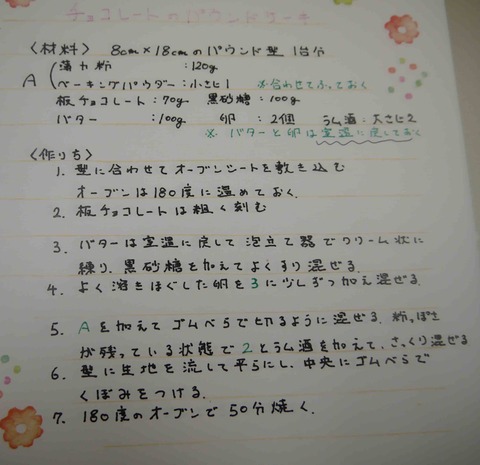 チョコレートのパウンドケーキ
〈材料〉 8cm×18cmのパウンド型 1台分
A 薄力粉 :120g
ベーキングパウダー:小さじ1 ※合わせてふっておく
板チョコレート:70g 黒砂糖:100g
バター :100g 卵:2個 ラム酒:大さじ2
※ バターと卵は室温に戻しておく
〈作り方〉
1. 型に合わせてオーブンシートを敷き込む
オーブンは180度に温めておく.
2. 板チョコレートは粗く刻む
3. バターは室温に戻して泡立て器でクリーム状に
練り、黒砂糖を加えてよくすり混ぜる.
4. よく溶きほぐした卵を3に少しずつ加え混ぜる.
5. Aを加えてゴムベらで切るように混ぜる. 粉っぽさ
が残っている状態で2とラム酒を加えて、さっくり混ぜる
6. 型に生地を流して平らにし、中央にゴムべらで
くぼみをつける.
7. 180度のオーブンで50分焼く.